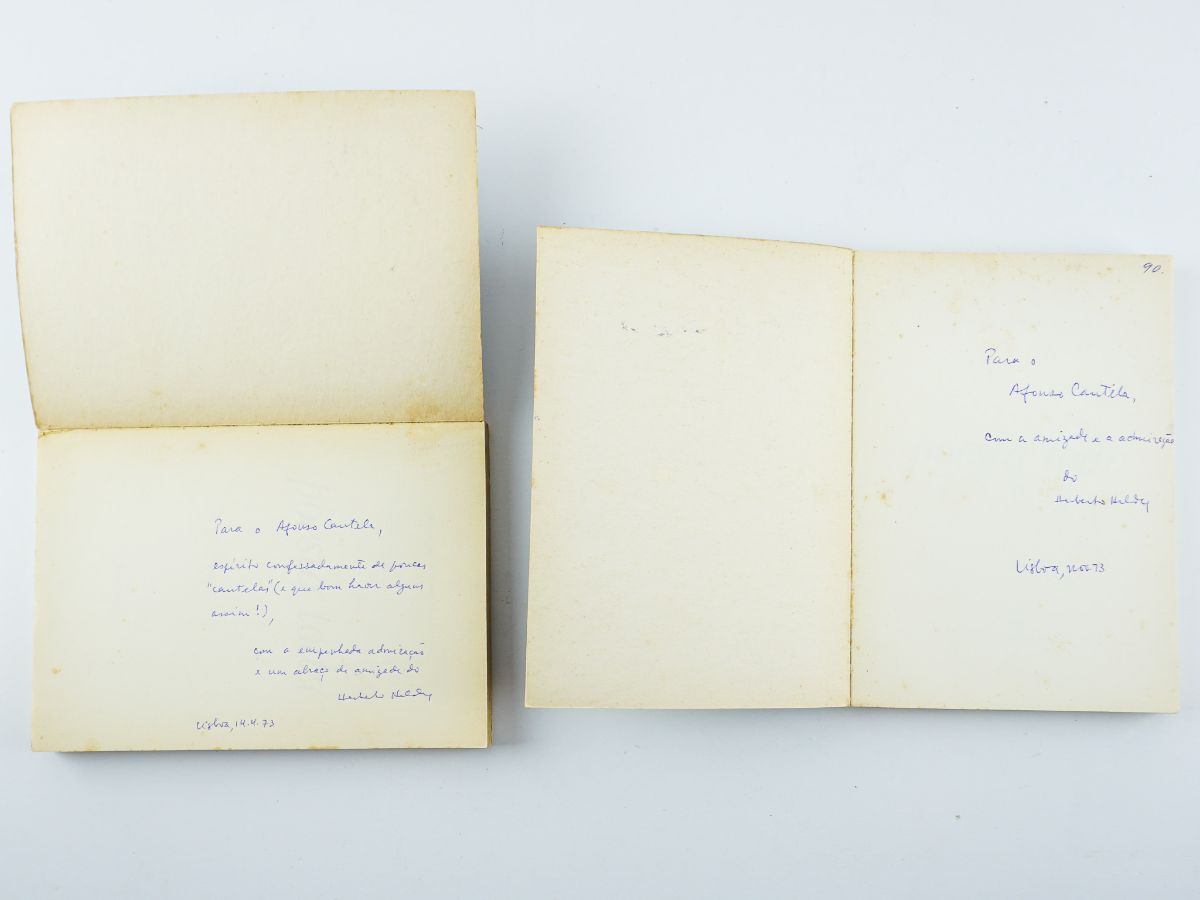 Para o Afonso Cautela,
espírito confessadamente de poucas
"cautelas" (e que bom haver alguns
assim!),
com a empenhada admiração
e um abraço de amizade do
Herberto Helder
Lisboa, 14.4.73
90.
Para o
Afonso Cautéla,
com a amizade e a admiração
do
Herberto Helder
Lisboa, nov. 73